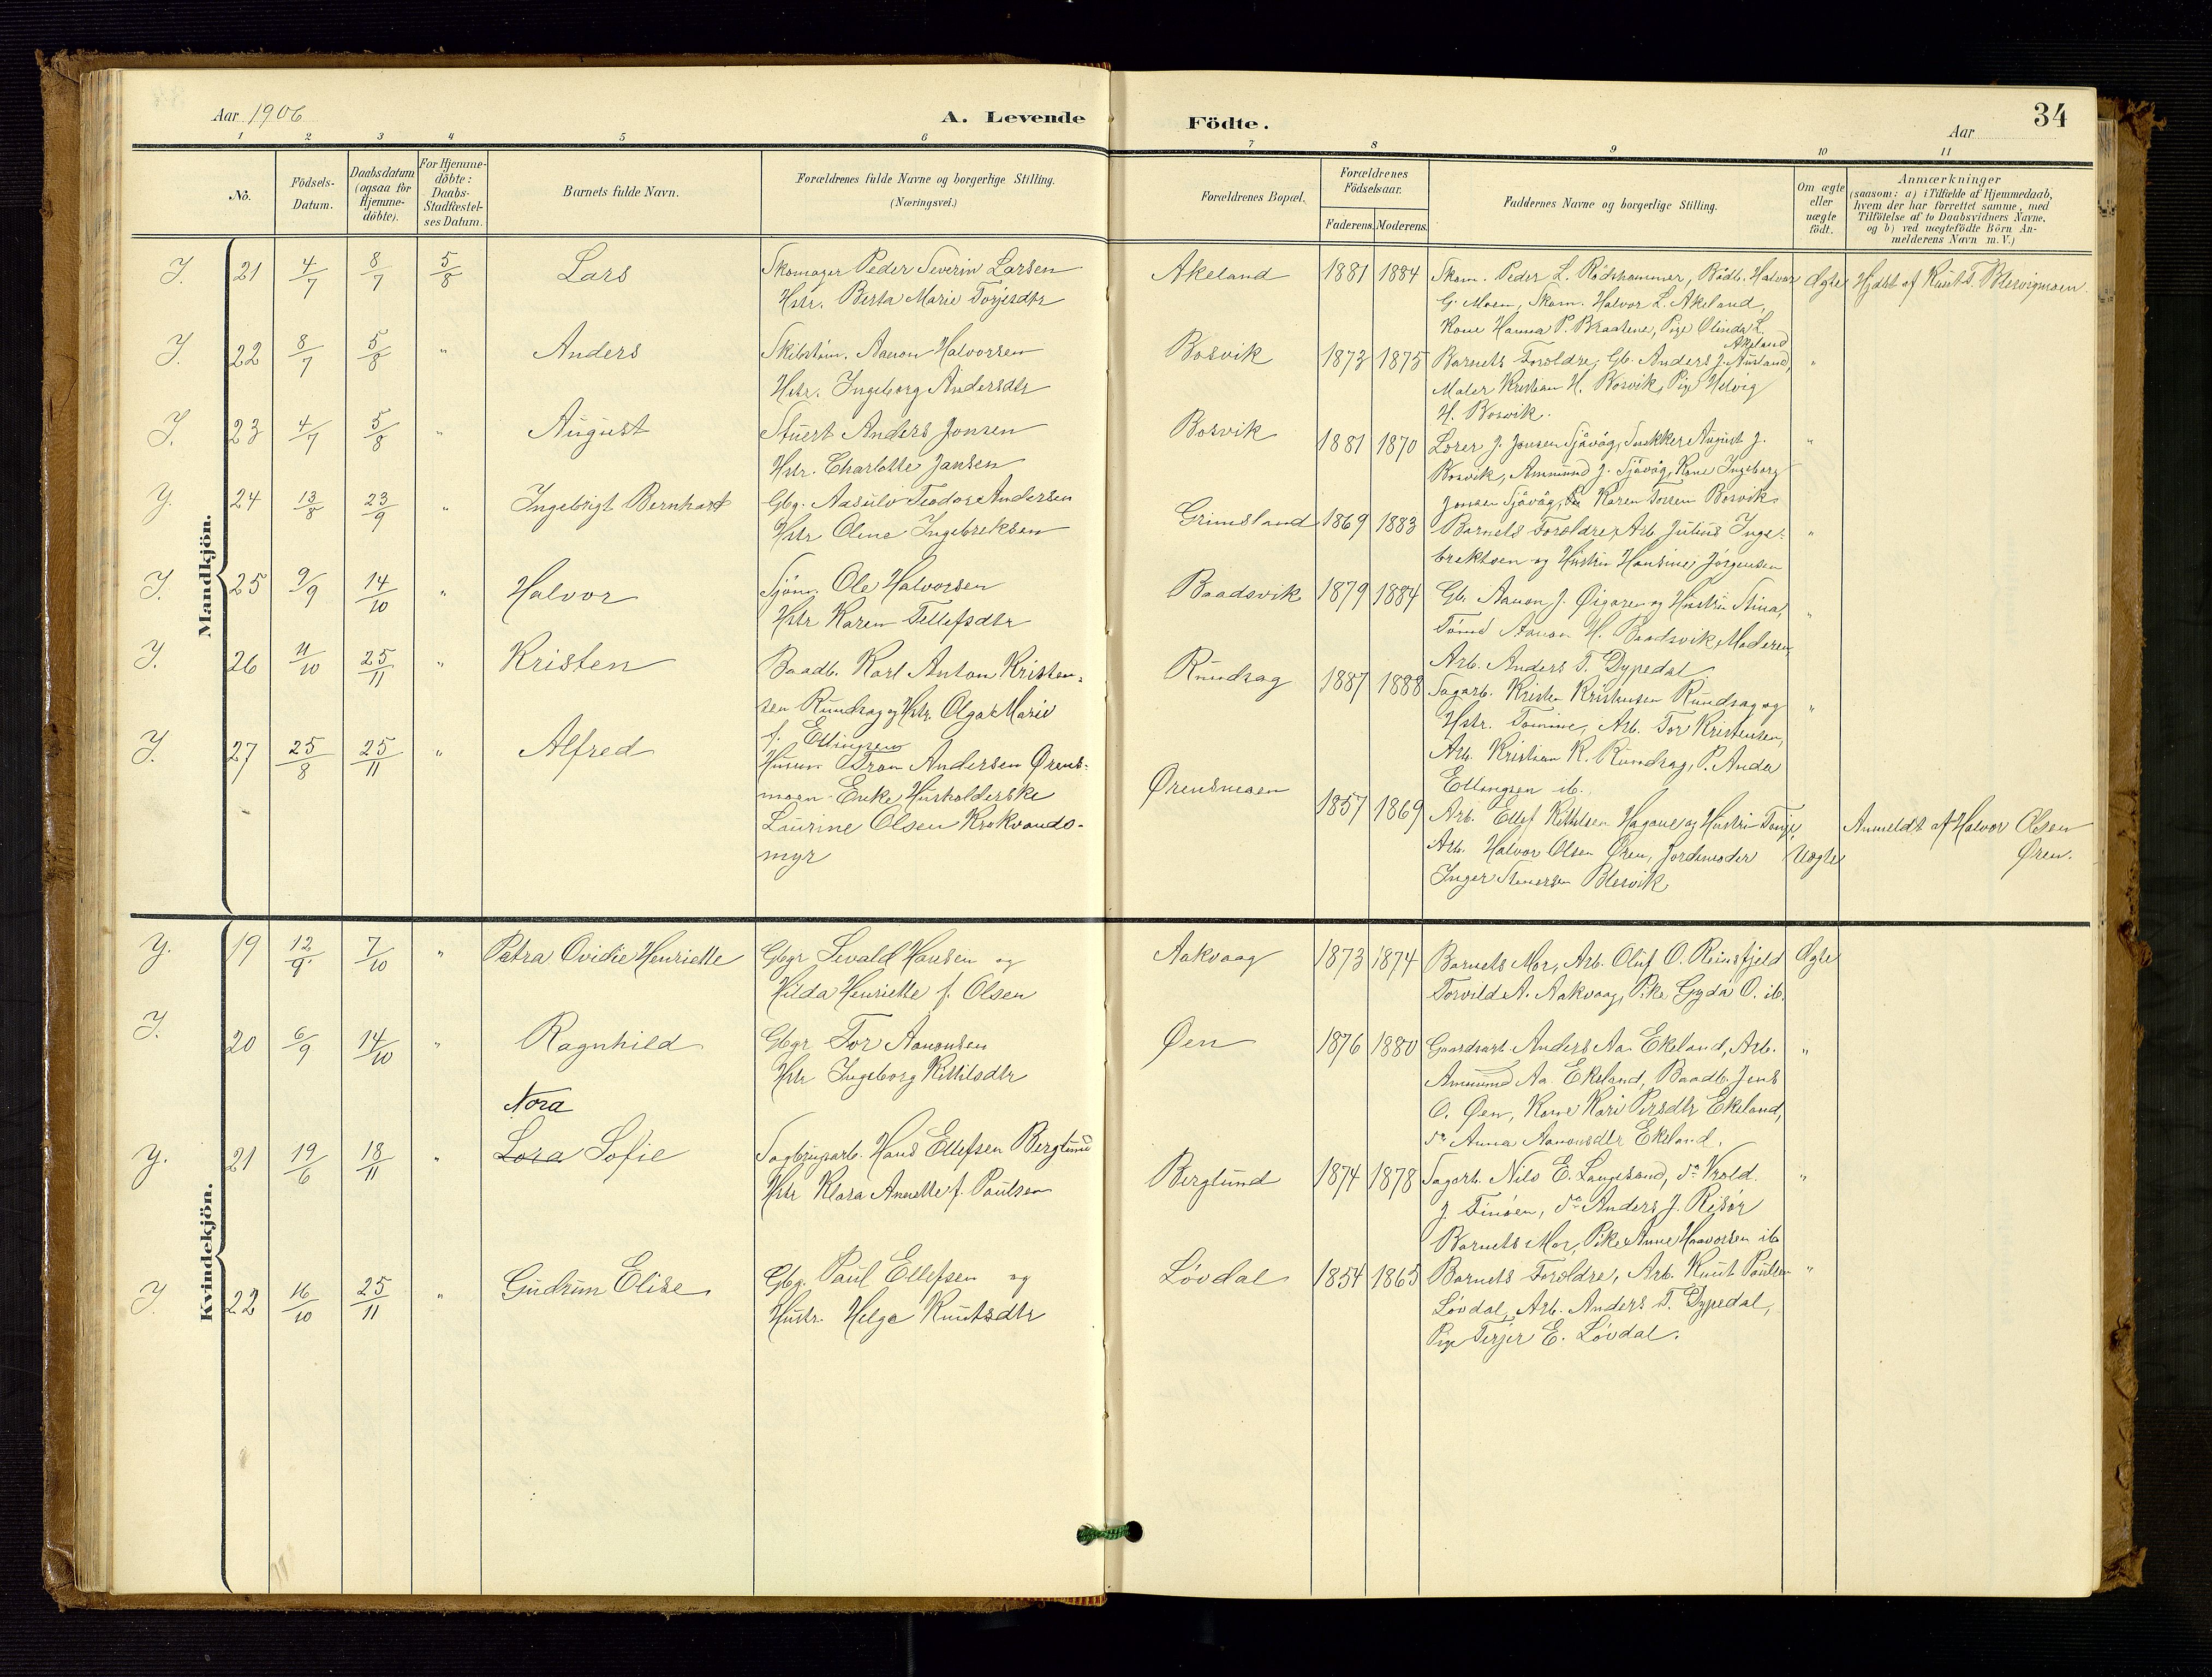 Aar 1906
A. Levende Födte.
Aar
34
1 2 3 4 5 6 7 8 9 10 11
No.
Födsels-Datum.
Daabsdatum (ogsaa for Hjemme-döbte).
For Hjemme-döbte: Daabs-Stadfæstel-ses Datum.
Barnets fulde Navn.
Forældrenes fulde Navne og borgerlige Stilling.
(Næringsvei.)
Forældrenes Bopæl.
Forældrenes Födselsaar.
Faderens. Moderens.
Faddernes Navne og borgerlige Stilling.
Om ægte eller uægte födt.
Anmærkninger
(saasom: a) i Tilfælde af Hjemmedaab, hvem der har forrettet samme, med Tilföielse af to Daabsvidners Navne. og b) ved uægtefödte Börn An-melderens Navn m. V.)
Mandkjön.
J. 21 4/7 8/7 5/8 Lars
Skomager Peder Severin Larsen
Hstr. Berta Marie Torjesdtr
Akeland 1881 1884
Skom. Peder L. Rödshammer, Bödk. Halvor
G. Moen, Skom. Halvor L. Akeland,
Kone Hanna P. Braatene, Pige Olinda L.
Akeland
Ægte
Hjdøbt af Knut T. Blesvigmoen.
J. 22 8/7 5/8 " Anders
Skibstøm. Aanon Halvorsen
Hstr. Ingeborg Andersdtr
Bosvik 1873 1875
Barnets Foreldre, Gb. Anders J. Ausland,
Maler Kristian H. Bosvik, Pige Helvig
H. Bosvik.
"
J. 23 4/7 5/8 " August
Stuert Anders Jonsen
Hstr. Charlotte Jansen
Bosvik 1881 1870
J. Jonsen Sjåvåg, Snekker August J.
Bosvik, Ammund J. Sjåvåg, Kone Ingeborg
Jonsen Sjåvåg, Karen Bosvik.
"
Y. 24 13/8 23/9 " Ingebrigt Bernhart
Gbg. Aasulv Teodor Andersen
Hstr Oline Ingebreksen
Grimsland 1869 1883
Barnets Foreldre, Arb. Julius Inge-
brektsen og Hustru Hansine, Jørgensen
"
J. 25 9/9 14/10 " Halvor
Sjöm. Ole Halvorsen
Hstr Karen Tellefsdtr
Baadsvik 1879 1884
Gb. Aanon J. Øigaren og Hustru Stina,
Tømd Aanon H. Baadsvik, Moderen
Arb. Anders T. Dypedal
"
J. 26 11/10 25/11 " Kristen
Baadb. Karl Anton Kristen-
sen Rundsag og Hstr. Olga Marie
f. Ellingsen
Rundsag 1887 1888
Sagarb. Kristen Kristensen Rundsag og
Hstr. Tomine, Arb. Tor Kristensen,
Arb. Kristian K. Rundsag, P. Anda
Ellingsen ib.
"
J. 27 25/8 25/11 " Alfred
Husm. Tron Andersen Ørens-
moen. Enke Husholderske
Laurine Olsen Krokvands-
myr
Ørensmoen 1857 1869
Arb. Ellef Kittelsen Hagane og Hustru
Arb. Halvor Olsen Øren, Jordmoder
Inger Blesvik
Uægte
Anmeldt af Halvor Olsen
Øren.
Kvindekjön.
Y. 19 12/9 7/10 " Petra Ovidie Henriette
Gbgr Sevald Hansen og
Hilda Henriette f. Olsen
Aakvaag 1873 1874
Barnets Mor, Arb. Oluf O. Reinsfjeld
Torvild A. Aakvaag, Pike Gyda O. ib.
Ægte
J. 20 6/9 14/10 " Ragnhild
Gbgr Tor Aanonsen
Hstr Ingeborg Kittilsdtr
Øen 1876 1880
Gaardsarb. Anders Aa. Ekeland, Arb.
Ammund Aa. Ekeland, Baadb. Jens
O. Øen, Kone Kari Persdtr Ekeland,
do Anna Aanonsdtr Ekeland.
"
Nora
Y. 21 19/6 18/11 " Lora Sofie
Sagbrugsarb. Hans Ellefsen Berglund
Hstr Klara Annette f. Paulsen
Berglund 1874 1878
Sagarb. Nils E. Langsand, do Vrold.
J. Finsen, do Anders J. Risør
Barnets Mor, Pike Anne Haavorsen ib
"
J. 22 16/10 25/11 " Gudrun Elise
Gbg. Paul Ellefsen og
Hustr. Helga Knutsdtr
Løvdal 1854 1865
Barnets Foreldre, Arb. Knut Paulsen
Løvdal, Arb. Anders T. Dypedal,
Pige Terjer E. Løvdal.
"